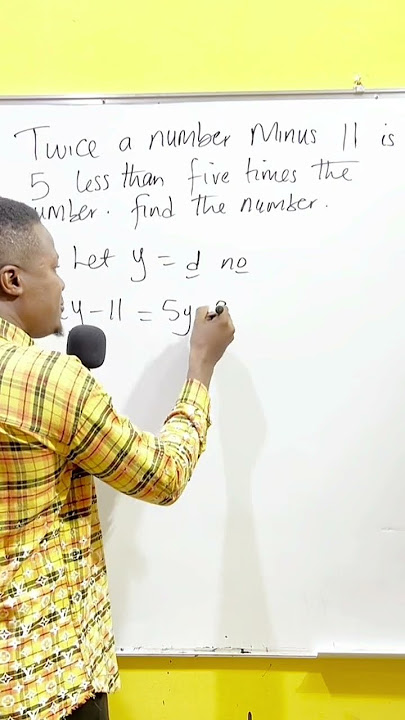 Twice a number Minus 11 is
5 less than five times the
umber. find the number.
Let y = d no
y - 11 = 5y